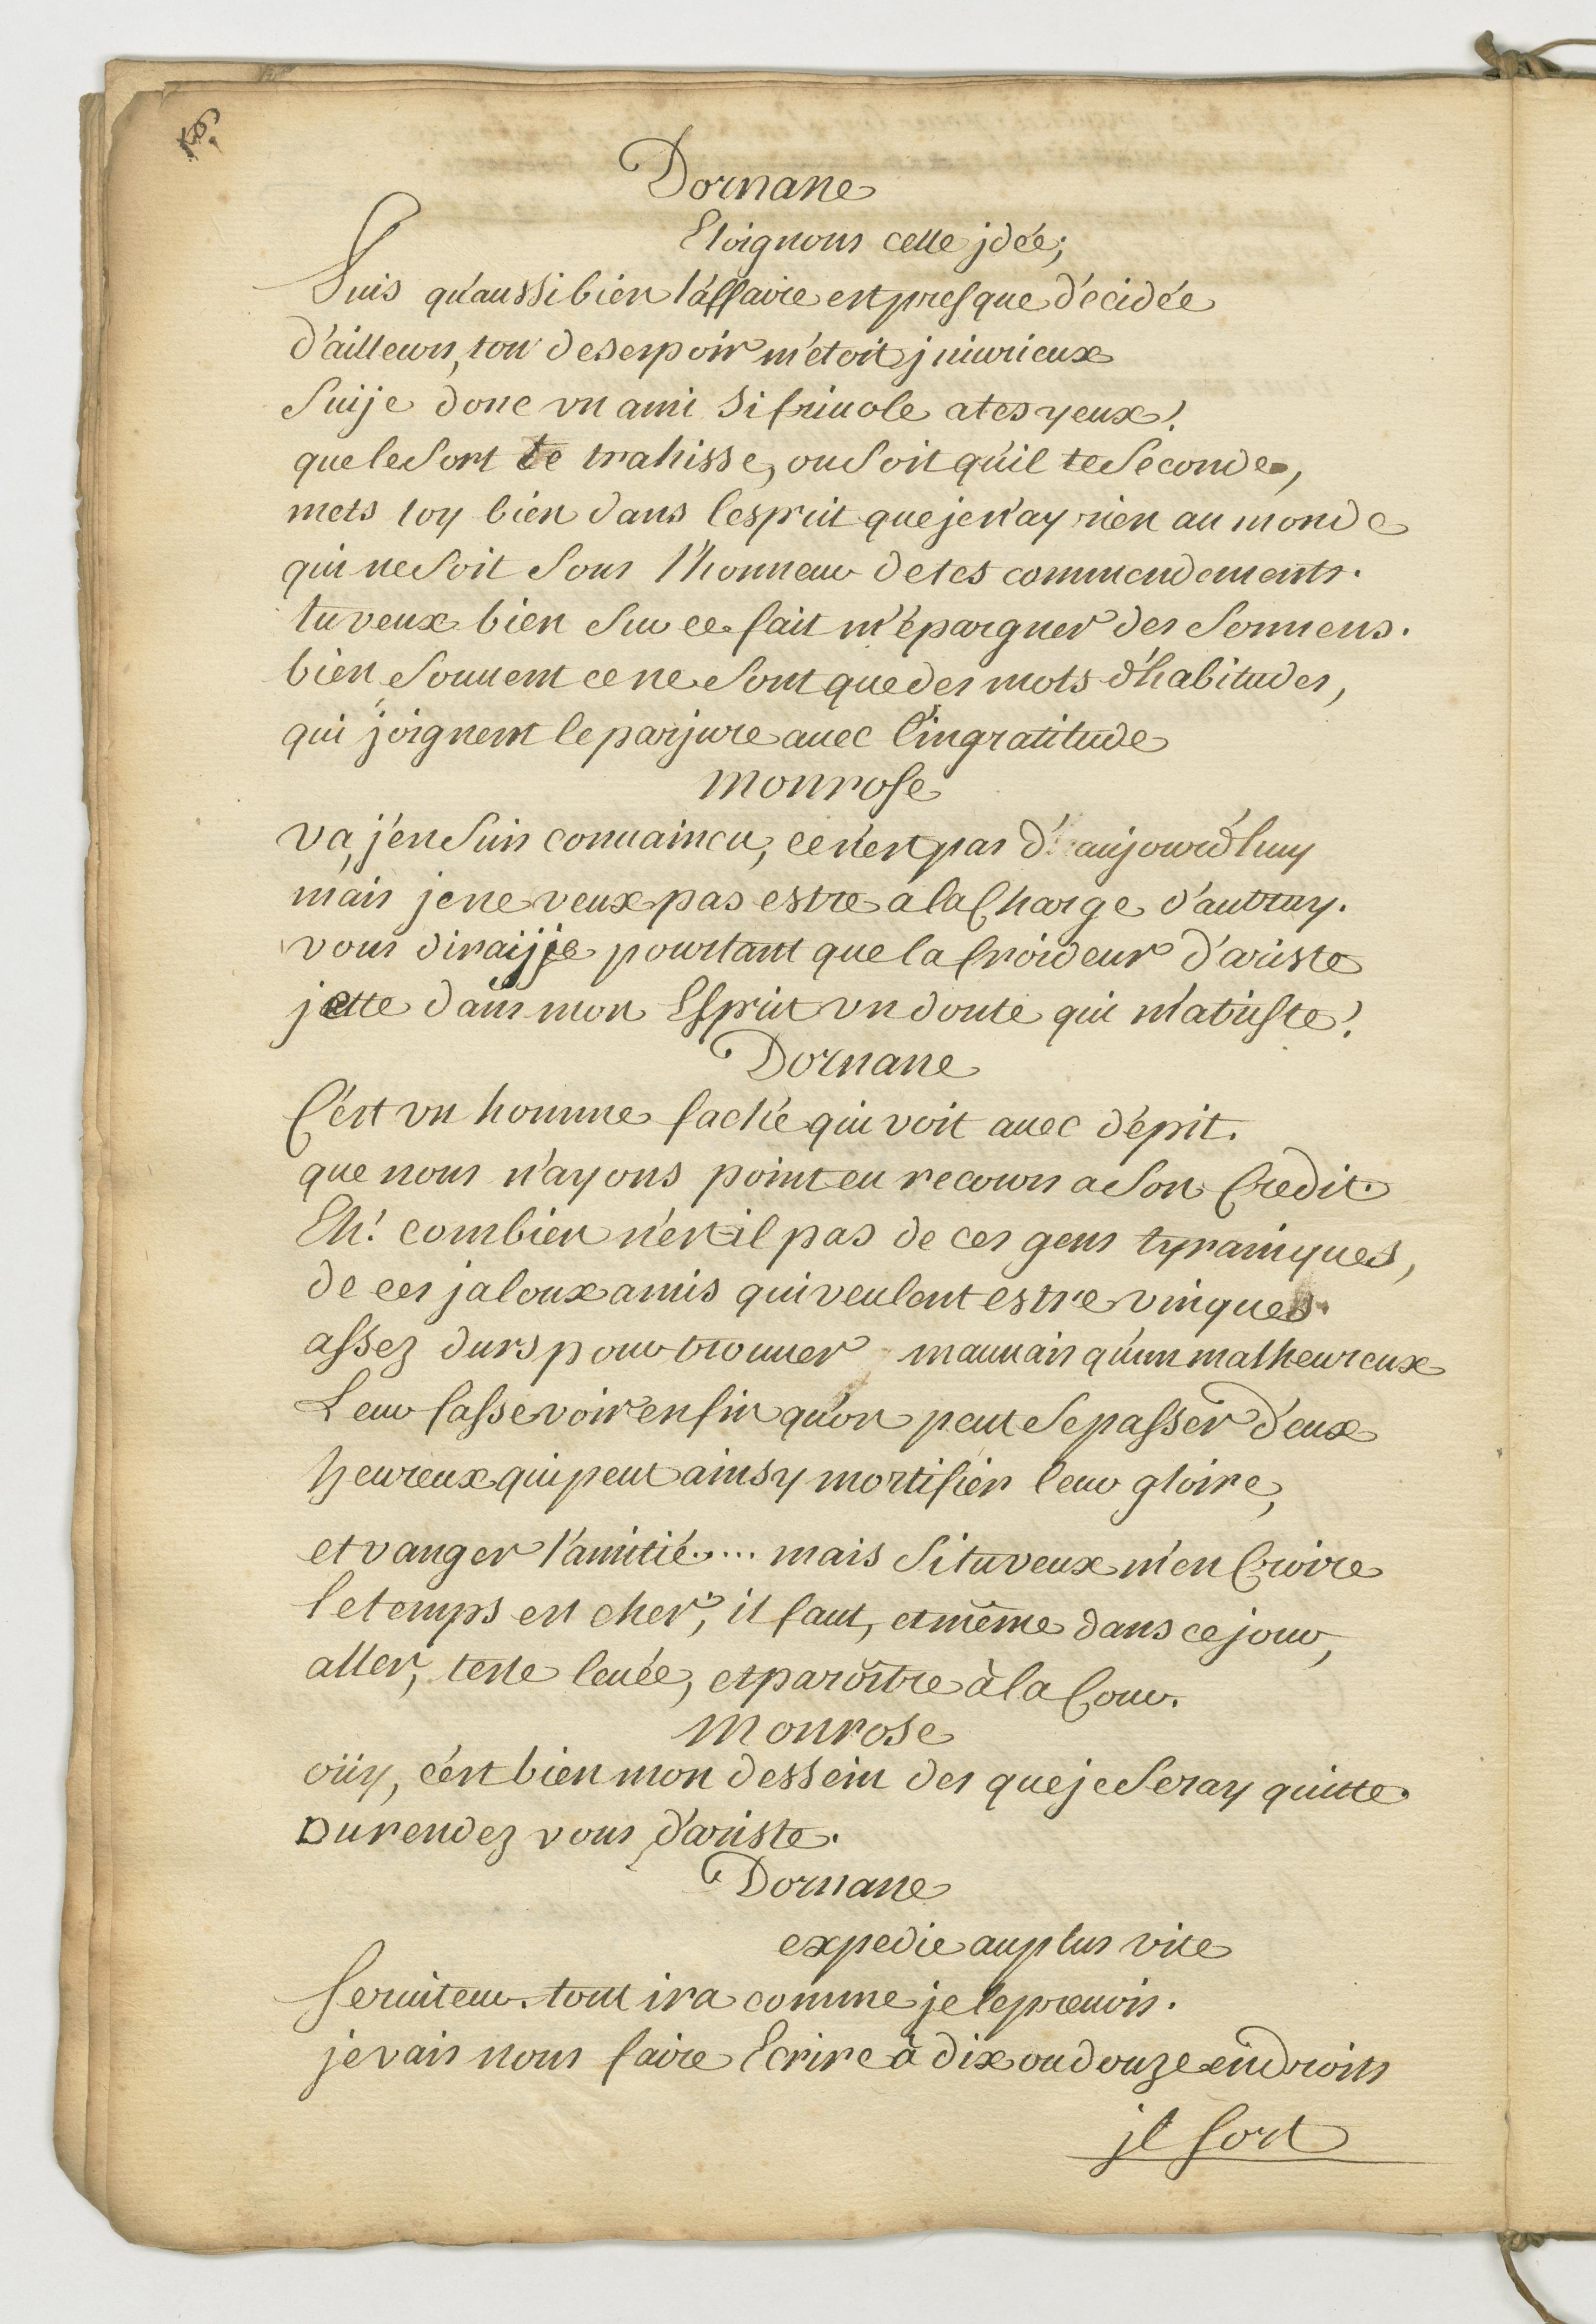 Dornane
Eloignons cette jdée;
Puis qu'aussi bien l'affaire est presque décidée
d'ailleurs, ton desespoir m'étoit jniurieux
Suije donc vn ami si friuole a tes yeux!
que le Sort te trahisse, ou Soit qu'il te Seconde,
mets toy bien dans l'esprit que je n'ay rien au monde
qui ne Soit Sous l'honneur de tes commendements.
tu veux bien Sur ce fait m'épargner des Sermens.
bien Souuent ce ne Sont que des mots d'habitudes,
qui joignent le parjure auec l'ingratitude
monrose
va, j'en Suis conuaincu, ce n'est pas d'aujourd'huy
mais je ne veux pas estre a la Charge d'autruy.
vous diraijje pourtant que la froideur d'ariste
jette dans mon Esprit vn doute qui m'atriste!
Dornane
C'est vn homme faché qui voit auec dépit.
que nous n'ayons point eu recours a Son Credit.
Eh! combien n'est-il pas de ces gens tyraniques,
de ces jaloux amis qui veulent estre vniques
assez durs pour trouuer mauuais qu'un malheureux
Leur fasse voir enfin qu'on peut Se passer d'eux
heureux qui peut ainsy mortifier leur gloire,
et vanger l'amitié.... mais Si tu veux m'en Croire
le temps est cher, il faut, et même dans ce jour,
aller, teste leuée, et paroître à la Cour.
monrose
oüy, c'est bien mon dessein des que je Seray quitte.
Du rendez vous d'ariste.
Dornane
expedie au plus vite
Seruiteur. tout ira comme je le preuois.
je vais nous faire Ecrire à dix ou douze endroits
jl sort